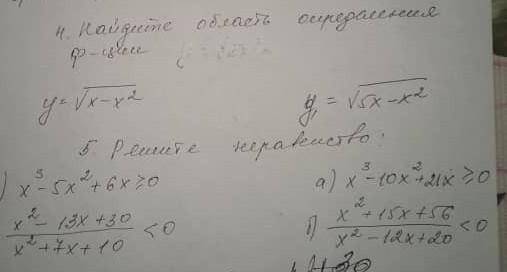 4. Найдите область определения
ф-ции
y = √(x - x²) y = √(5x - x²)
5. Решите неравенство:
) x³ - 5x² + 6x ≥ 0 а) x³ - 10x² + 21x ≥ 0
(x² - 13x + 30)/(x² + 7x + 10) < 0 б) (x² + 15x + 56)/(x² - 12x + 20) < 0